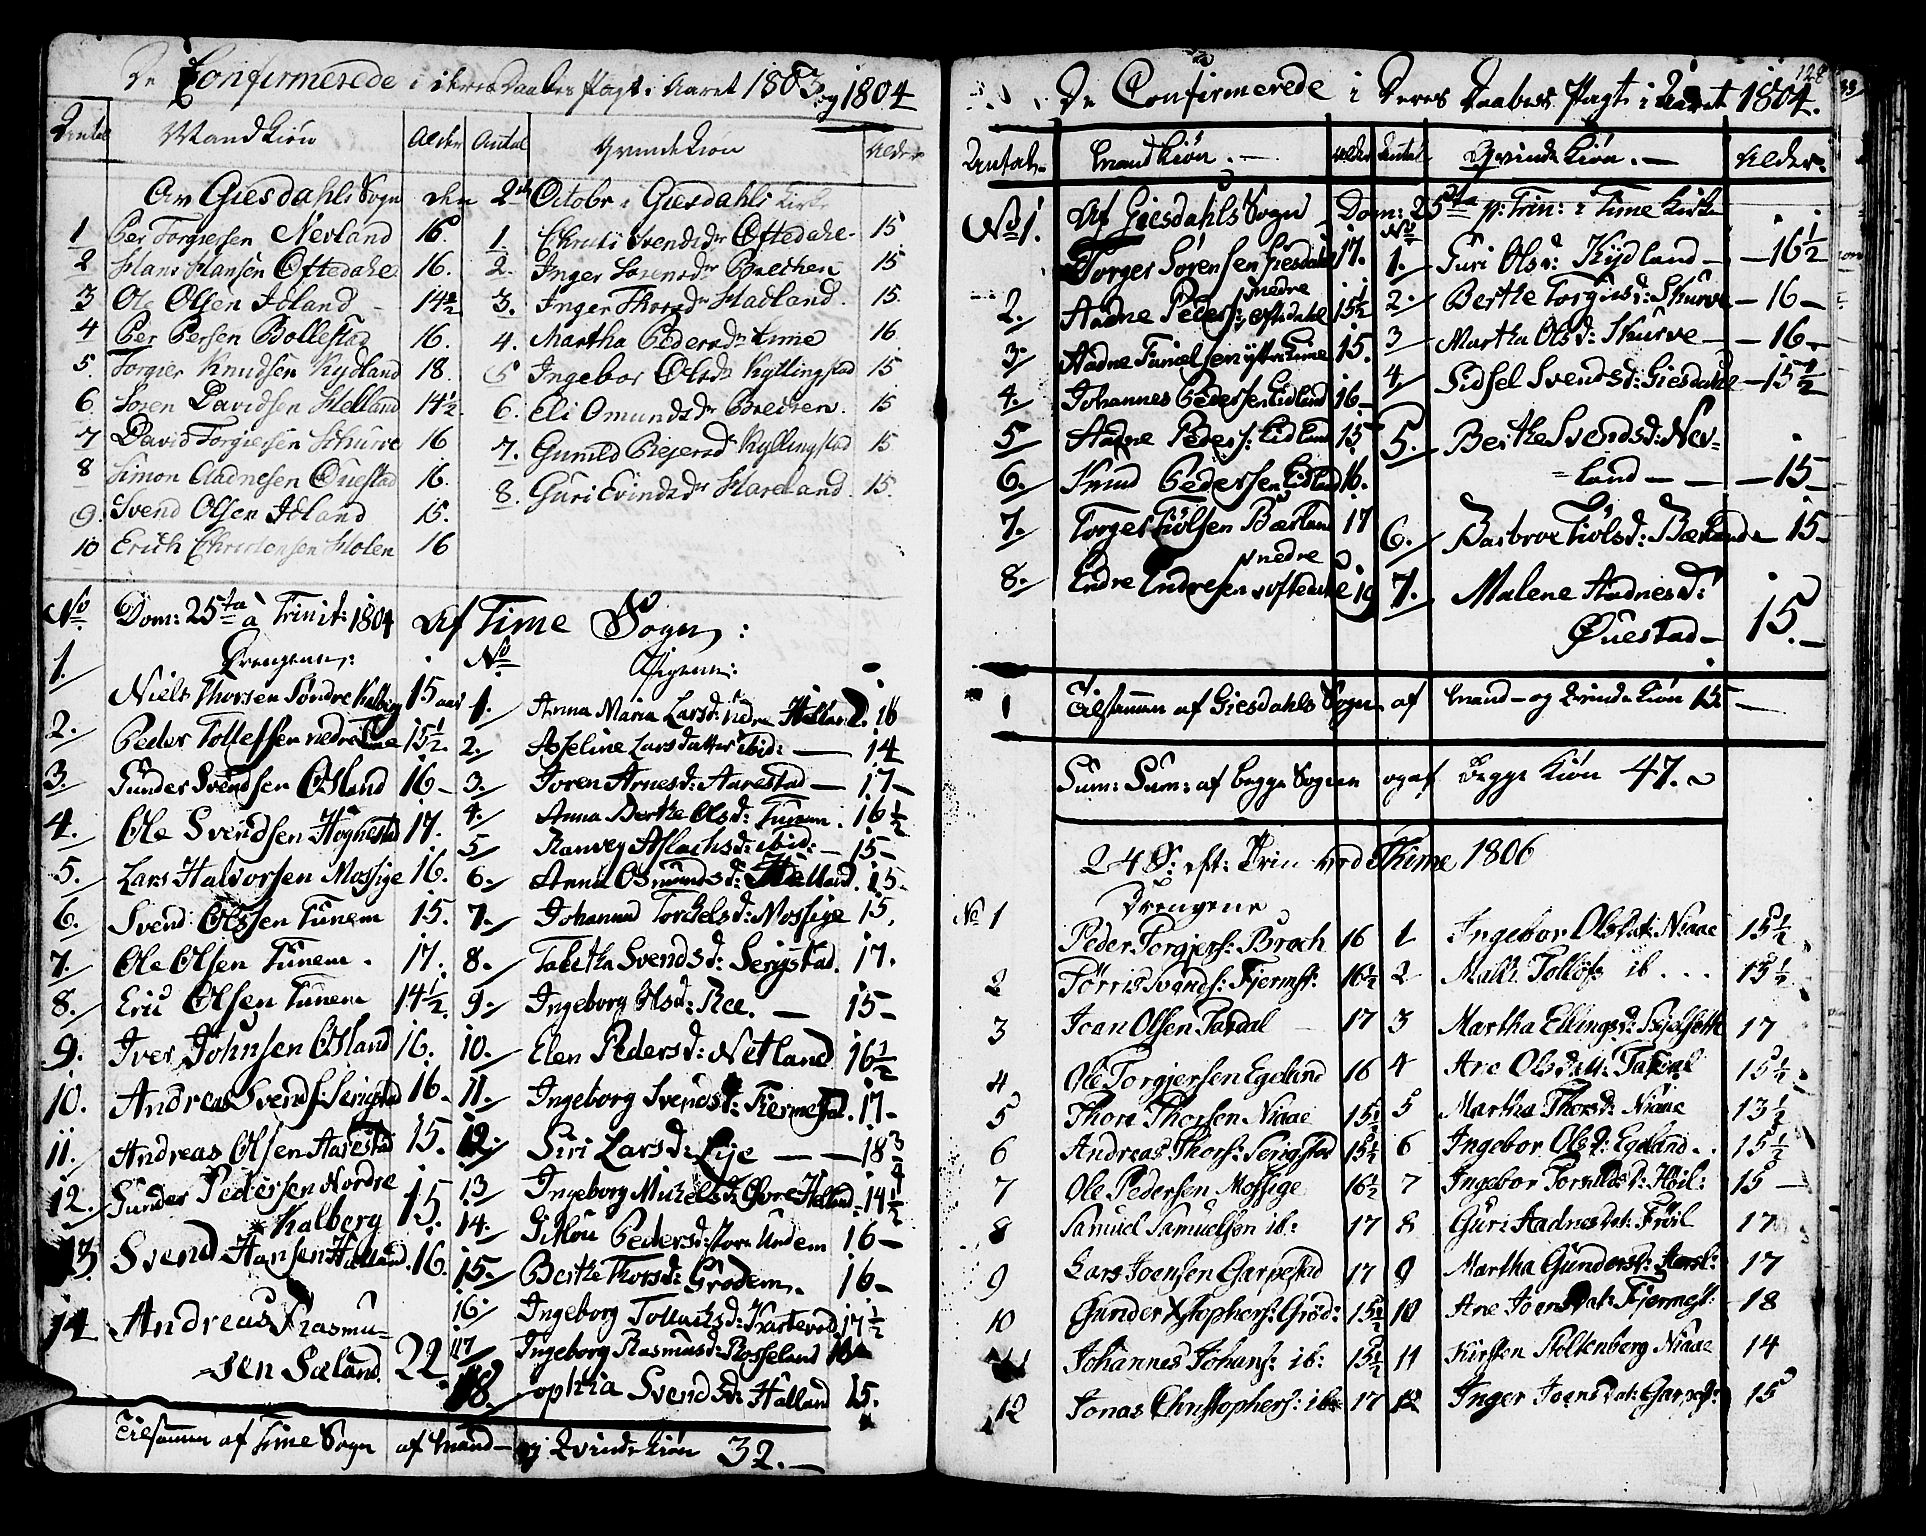 De Confirmerede i deres Daabes Pagt i Aaret 1803 og 1804
Antal Mandkiøn Alder Antal Qvindekiøn Alder
Av Giesdahls Sogn den 2den Octobr i Giesdahls Kirke
1 Per Torgiersen Nevland 16. 1. Christi Svendsdr Oftedahl 15
2 Hans Hansen Oftedahl 16. 2. Inger Sørensdr Brechen 15
3 Ole Olsen Idland 14½ 3. Inger Thorsdr Hadland. 15.
4 Per Persen Bollestad 16. 4. Martha Pedersdr Lime 16.
5. Torgier Knudsen Kydland 18. 5 Ingebor Olsdr Kyllingstad 15
6. Søren Davidsen Helland 14½. 6. Eli Omundsdr Brechen. 15
7 David Torgiersen Schurve 16 7. Gunild Reiersd Kyllingstad 15
8 Simon Aadnesen Øuestad 16. 8. Guri Evindsdr Haveland. 15.
9. Svend Olsen Idland 15.
10 Erich Christensen Holen 16
No. Dom: 25ta à Trinit: 1804 Af Time Sogn:
Drengene: No Pigene:
1. Niels Thorsen Søndre Kalberg 15 aar 1. Anna Maria Larsd: nedre Helland. 16
2. Peder Tollefsen nedre Lime 15½. 2. Asseline Larsdatter ibid: — 14
3. Gunder Svendsen Osland 16 – 3. Joren Arnesd: Aarestad — 17 –
4. Ole Svendsen Høgnestad 17. 4. Anna Berthe Olsd: Tunem. 16½
5. Lars Halvorsen Mossige 16. 5 Ranveg Aslachsd: ibid: — 15 –
6. Svend Olssen Tunem 15. 6. Anna Osmundsd: Helland. 15.
7. Ole Olsen Tunem. 17. 7. Johanna Torchelsd: Mossige 15.
8. Eric Olsen Tunem 14½. 8. Tabitha Svendsd: Serigstad. 17.
9. Iver Johnsen Osland 16. 9. Ingeborg Olsd: Ree. — 15 –
10. Andreas Svends: Serigstad 16 – 10. Elen Pedersd: Netland 16½
11. Andreas Olsen Aarestad 15. 11. Ingeborg Svendsd: Fiermestad. 17 –
12. Gunder Pedersen Nordre 12. Siri Larsd: Lye — — 18¾
Kalberg 15. 13 Ingeborg Michelsd: Øvre Helland 14½
13. Svend Hansen Haaland. 16. 14. Gitlou Pedersd: store Undem 16 –
15. Berthe Thorsd: Grødem. 16 –
14 Andreas Rasmu- 16. Ingeborg Tollachsd: 17½
sen Sæland. 22. 17 Ingeborg Rasmusd: Rosseland
18. Sophia Svendsd: Haaland 15.
Tilsammen af Time Sogn af Mand- og Qvindekiøn 32. –
De Confirmerede i Deres Daabes Pagt i Aaret 1804.
Antal. Mandkiøn. — Alder Antal Qvindekiøn. — Alder.
Af Giesdahls Sogn Dom: 25ta p: Trin: i Time Kirke
No 1. Torger Sørensen Giesdahl 17. No 1. Guri Olsd: Kydland — 16½
2. Aadne Peders: nedre Oftedahl 15½ 2. Berthe Torgiesd: Skurve — 16 –
3. Aadne Danielsen ytre Lime 15. 3 Martha Olsd: Skurve — 16 –
4. Johannes Pedersen Eidland 16 – 4 Sidsel Svendsd: Giesdahl — 15½
5 Aadne Peders: Eidland 15 5. Berthe Svendsd: Nev-
6. Knud Pedersen Eidland 16. land — — 15 –
7. Torger Tiølsen Bærland 17 6. Barbroe Tiølsd: Bærland 15 –
8. Endre Endresen nedre Oftedahl 19 7. Malene Aadnesd:
Øuestad — 15. –
1 Tilsammen af Giesdahls Sogn af Mand- og Qvindekiøn 15 –
Sum: Sum: af begge Sogene og af Begge Kiøn 47.
24 S: eft: Trin ved Thime 1806
Drengene
No 1 Peder Torgjers: Brach 16 1 Ingebor Olsdat: Niaae 15½
2 Tørris Svends: Fjermst: 16½ 2 Malli Tollefs ib... 15½
3 Joan Olsen Taxdal 17 3 Martha Ellingsd: 17
4 Ole Torgjersen Egeland 16 4 Ane Olsdatt: Taxdal 15½
5 Thore Thorsen Niaae 15½ 5 Martha Thorsd: Niaae 13½
6 Andreas Thors: Serigstad 15½ 6 Ingebor Olsd: Egeland.. 15½
7 Ole Pedersen Mossige 16½ 7 Ingebor Tornildsd: Høil: 15 –
8 Samuel Samuelsen ib: 17 8 Guri Aadnesdat: Frøil 17
9 Lars Joensen Garpestad 17 9 Martha Gundersd: 17
10 Gunder Xstophers: Grød: 15½ 10 Ane Joensdat: Fjermest: 18
11 Johannes Johans: ib: 15½ 11 Kirsten Stoltenberg Niaae 14
12 Jonas Christophers: ib: 17 12 Inger Joensdat: Garpest: 15